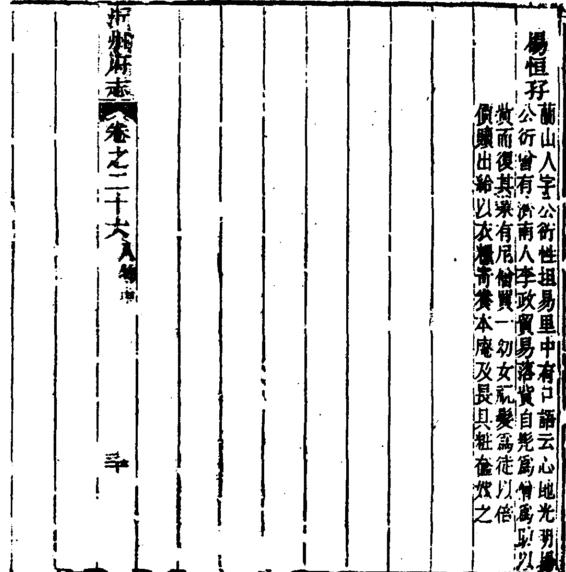 楊恒孖
蘭山人字公衍性坦易里中有口語云心地光明楊
公衍曾有濟南人李政貿易落貲自髠爲僧爲取以
貲而復其業有尼僧買一幼女祝髮爲徒以倍
價贖出給以衣糧寄養本庵及長具粧奩嫁之
沂州府志 卷之二十六 人物 三十